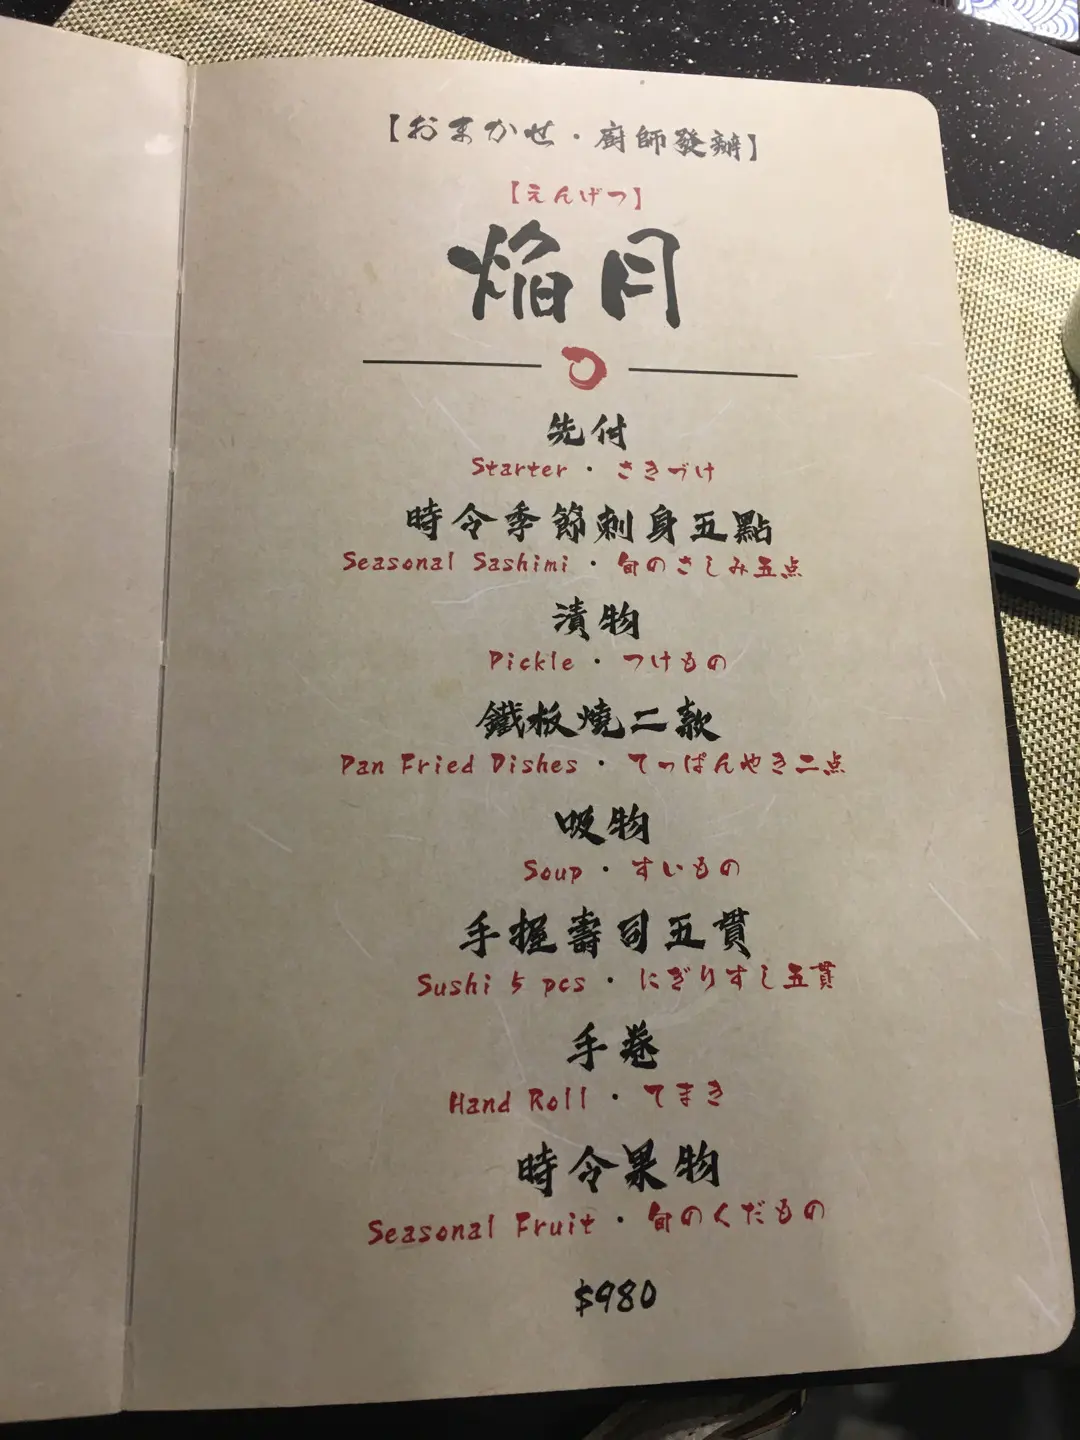 【おまかせ・廚師發辦】
【えんげつ】
焔月
先付
Starter・さきづけ
時令季節刺身五點
Seasonal Sashimi・旬のさしみ五点
漬物
Pickle・つけもの
鐵板燒二款
Pan Fried Dishes・てっぱんやき二点
吸物
Soup・すいもの
手握壽司五貫
Sushi 5 pcs・にぎりすし五貫
手巻
Hand Roll・てまき
時令果物
Seasonal Fruit・旬のくだもの
$980